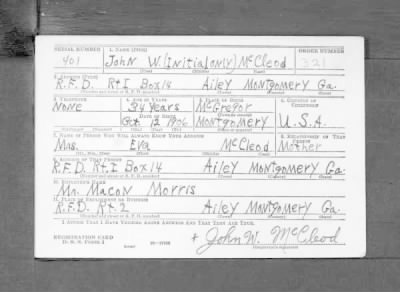 SERIAL NUMBER 1. NAME (Print) ORDER NUMBER
401 John W. (Initial only) McCleod 321
(First) (Middle) (Last)
2. ADDRESS (Print)
R.F.D. Rt. I Box 14 Ailey Montgomery Ga.
(Town) (County) (State)
3. TELEPHONE 4. AGE IN YEARS 5. PLACE OF BIRTH 6. COUNTRY OF CITIZENSHIP
None 34 Years McGregor
DATE OF BIRTH (Town or county)
Oct 12 1906 Montgomery U.S.A.
(Exchange) (Number) (Mo.) (Day) (Yr.) (State or country)
7. NAME OF PERSON WHO WILL ALWAYS KNOW YOUR ADDRESS 8. RELATIONSHIP OF THAT PERSON
Mrs. Eva McCleod Mother
(Mr., Mrs., Miss) (First) (Middle) (Last)
9. ADDRESS OF THAT PERSON
R.F.D. Rt. I Box 14 Ailey Montgomery Ga.
(Town) (County) (State)
10. EMPLOYER'S NAME
Mr. Macon Morris
11. PLACE OF EMPLOYMENT OR BUSINESS
R.F.D. Rt. 2 Ailey Montgomery Ga.
(Town) (County) (State)
I AFFIRM THAT I HAVE VERIFIED ABOVE ANSWERS AND THAT THEY ARE TRUE.
REGISTRATION CARD
D. S. S. Form 1 John W. McCleod
(Registrant's signature)